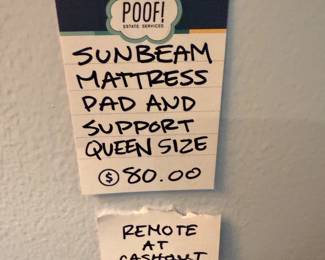 POOF!
ESTATE SERVICES
SUNBEAM
MATTRESS
PAD AND
SUPPORT
QUEEN SIZE
$80.00
REMOTE
AT
CASHOUT